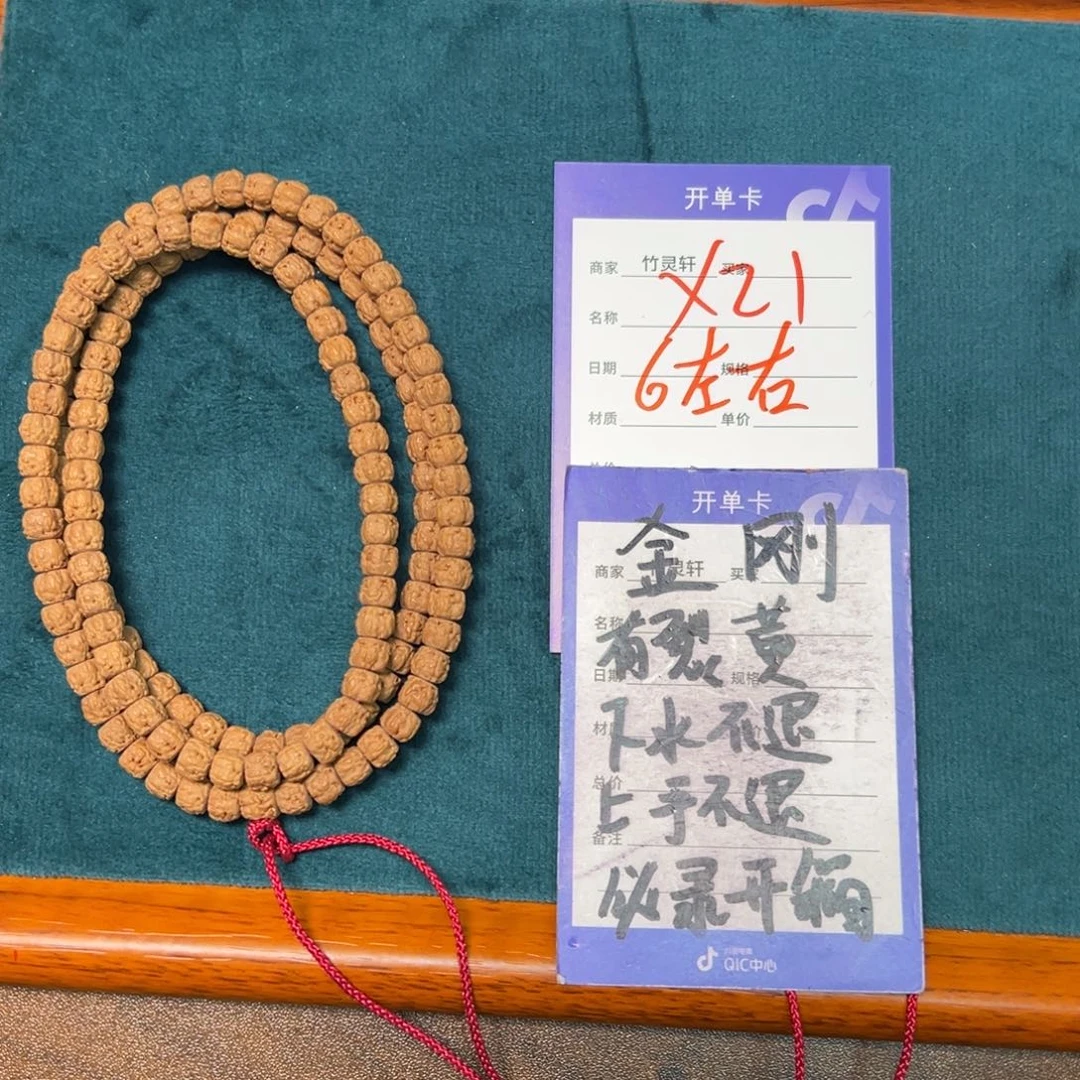 开单卡
商家 竹灵轩 买家
X21
名称
6左右
日期 规格
材质 单价
开单卡
金刚
商家 灵轩 买家
有裂 黄
名称
日期 规格
下水不退
材
总价
上手不退
备注
必录开箱
抖音电商
QIC中心